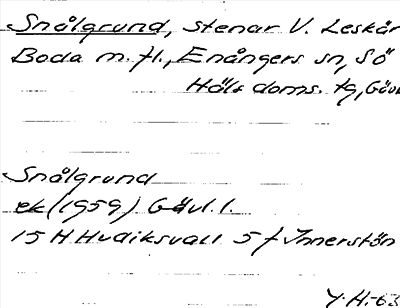 Snålgrund, stenar V. Leskär
Boda m. fl., Enångers sn, Sö
Häls doms. tg, Gävl
Snålgrund
ek (1959) Gävl. l.
15 H Hudiksvall 5 f Innerstön
Y. H. -63